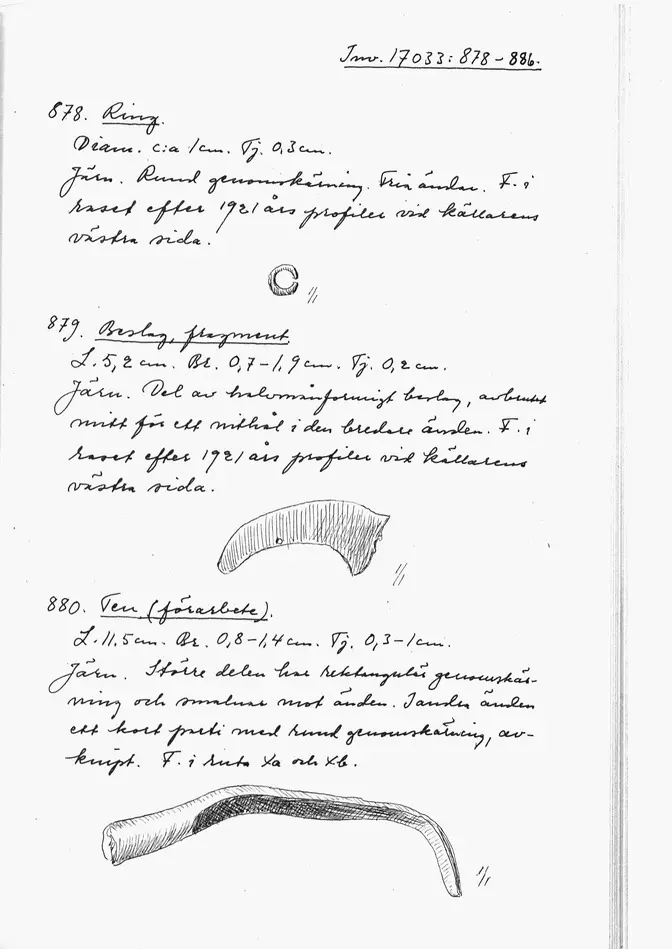 Inv. 17033: 878-886.
878. Ring.
Diam. c:a 1cm. Tj. 0,3cm.
Järn. Rund genomskärning. Fria ändar. F. i
raset efter 1921 års profiler vid källarens
västra sida.
1/1
879. Beslag, fragment.
L. 5,2 cm. Br. 0,7-1,9 cm. Tj. 0,2 cm.
Järn. Del av halvmånformigt beslag, avbrutet
mitt för ett nithål i den bredare änden. F. i
raset efter 1921 års profiler vid källarens
västra sida.
1/1
880. Ten (förarbete).
L. 11,5 cm. Br. 0,8-1,4 cm. Tj. 0,3-1cm.
Järn. Större delen har rektangulär genomskär-
ning och smalnar mot änden. I andra änden
ett kort parti med rund genomskärning, av-
knipt. F. i ruta Xa och Xb.
1/1